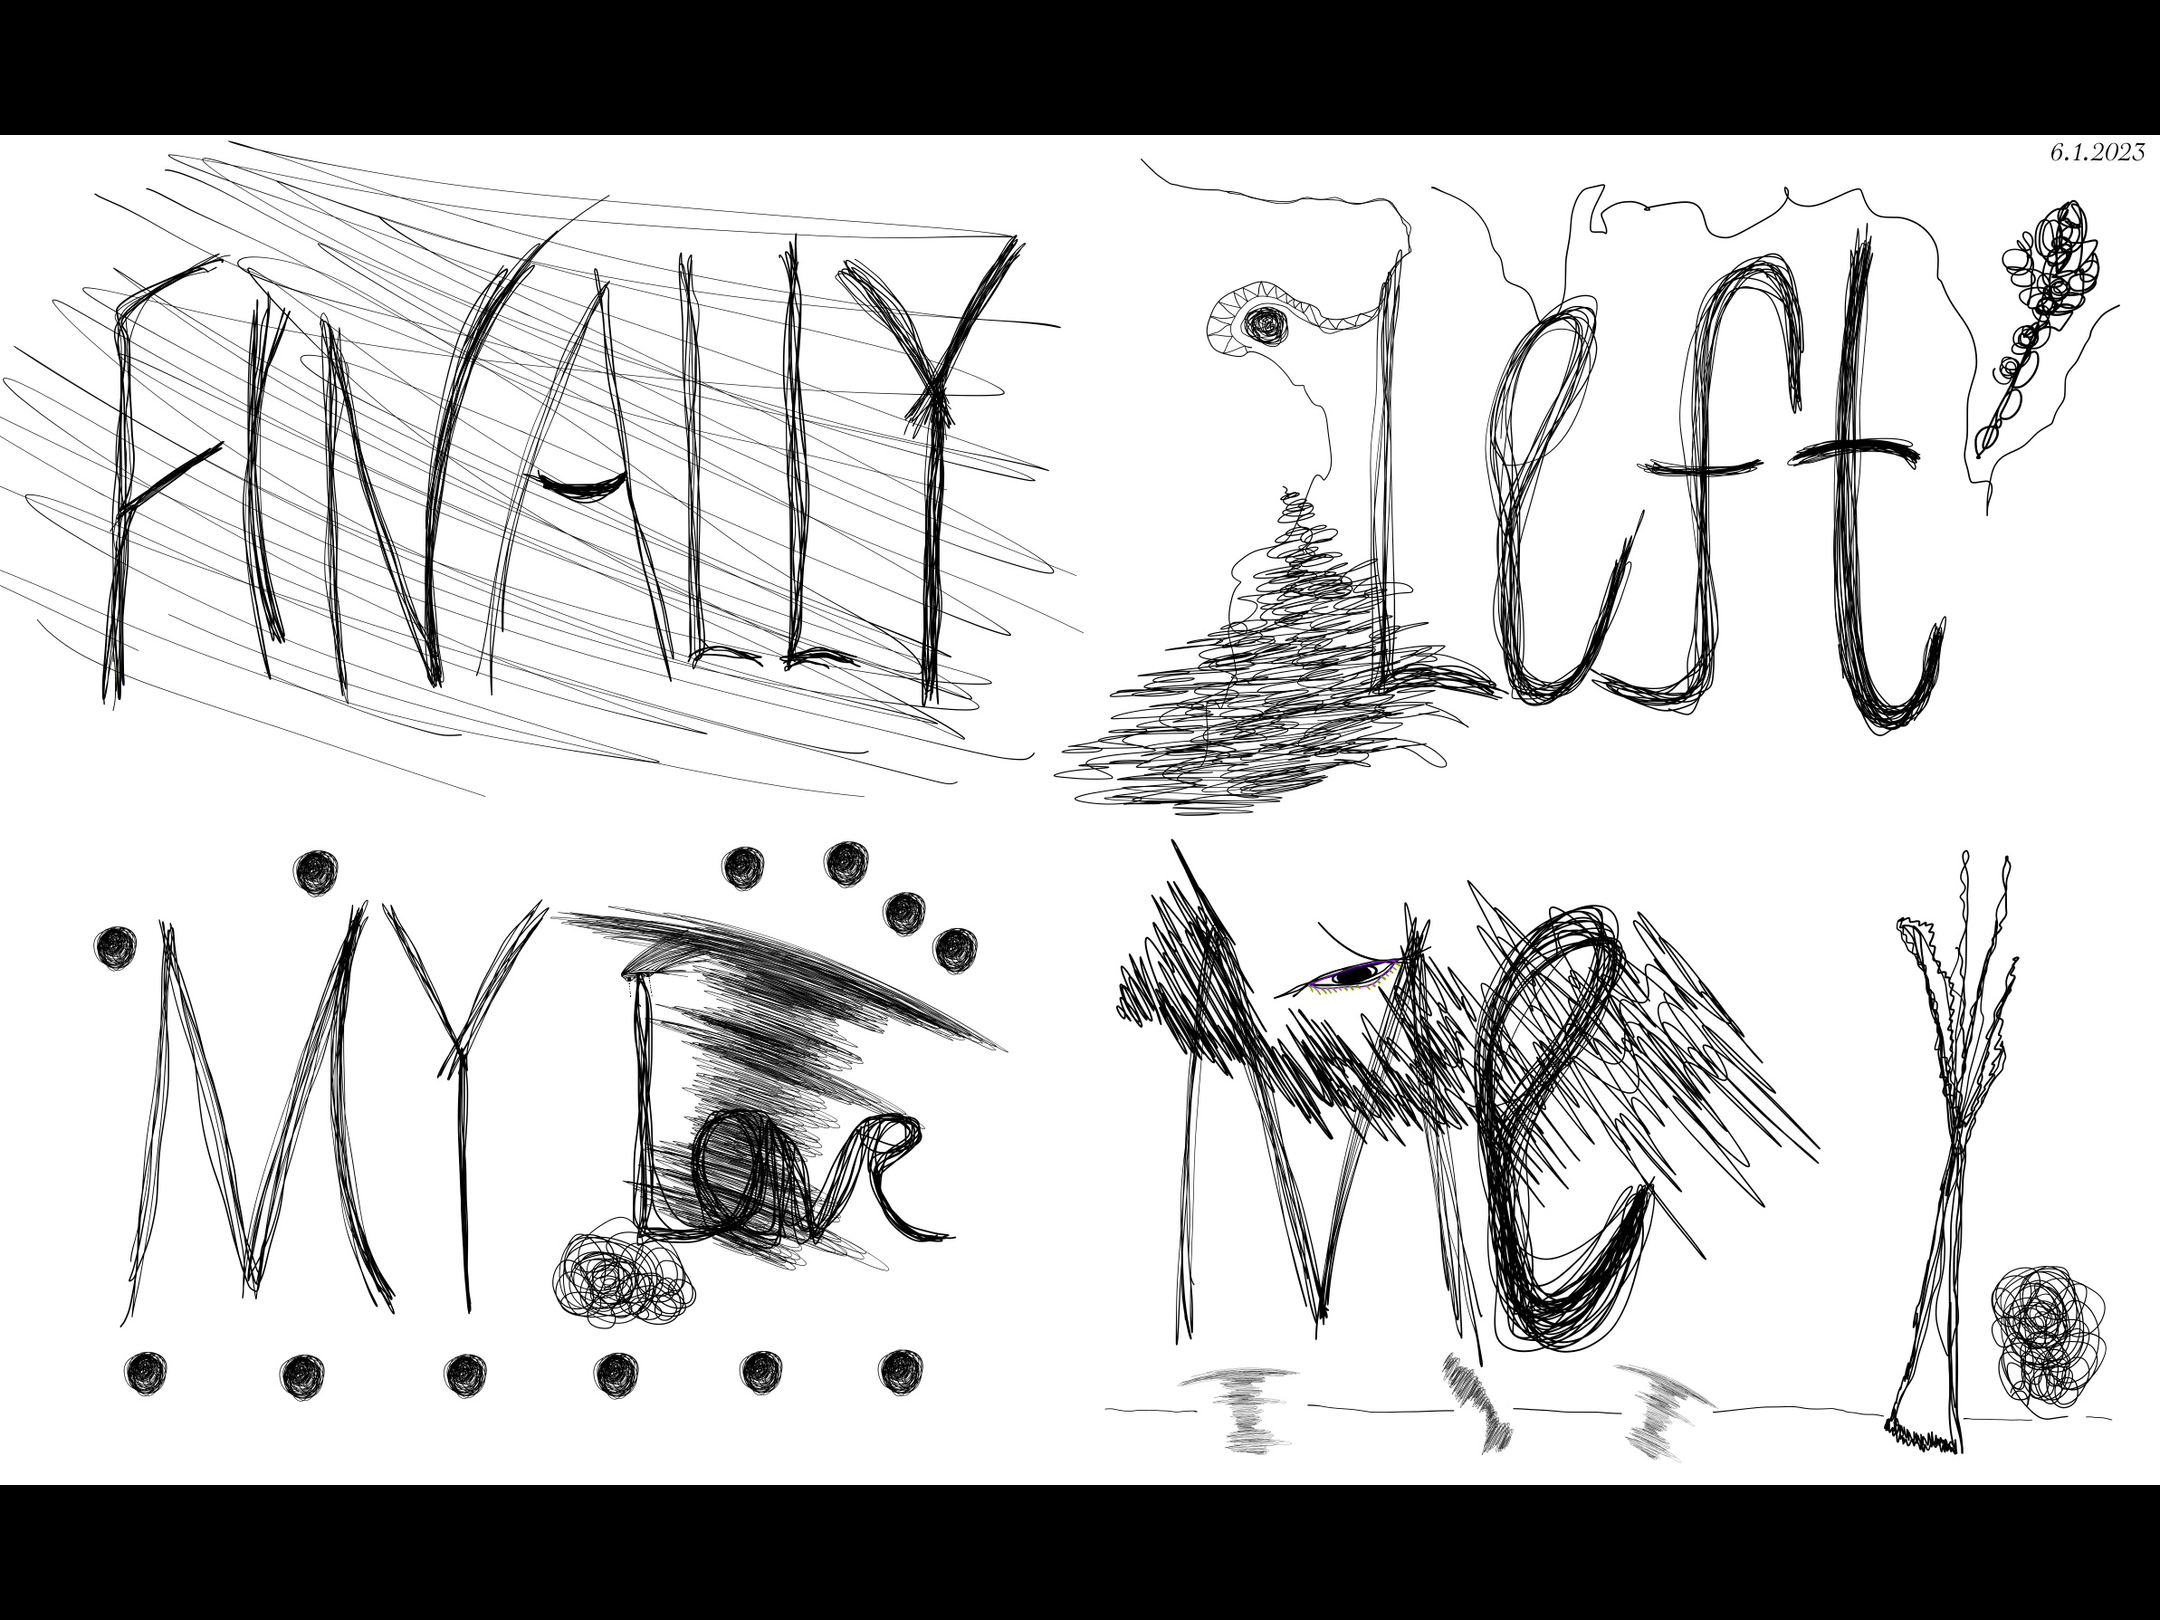 6.1.2023
FINALLY Left
MY Love Me